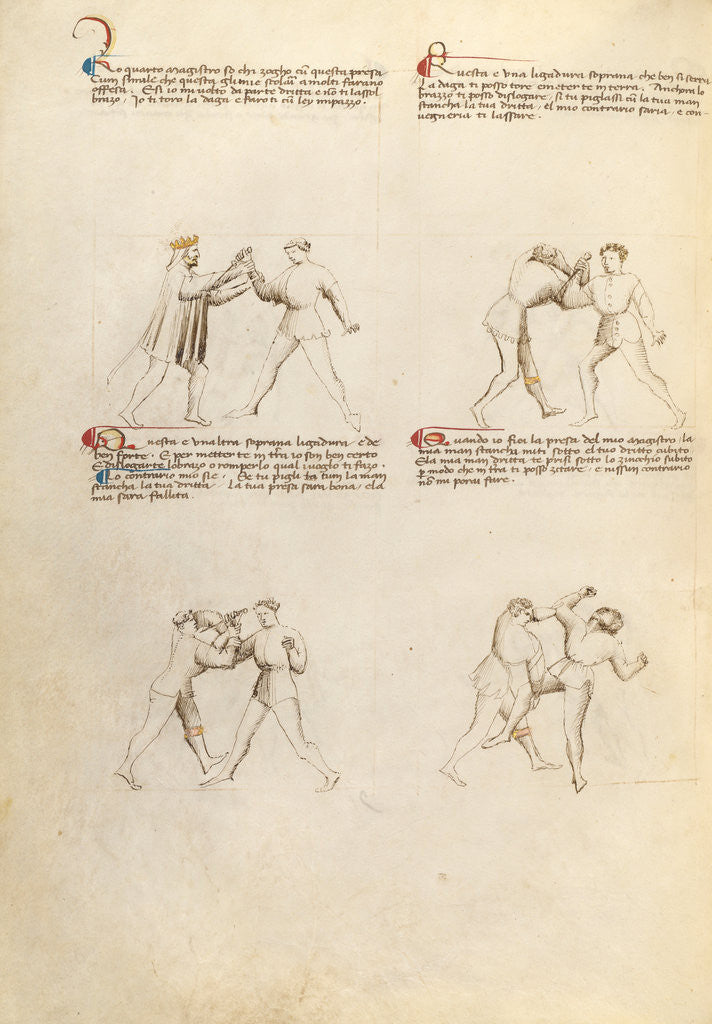 Lo quarto magistro so chi zogho cum questa presa
Cum simile che questa gli mie scolari a molti farano
offesa. E si io mi volto da parte dritta e non ti lasso l
brazo, Io ti toro la daga e faroti cum ley impazzo.
Questa e una ligadura soprana che ben si serra
La daga ti posso tore e meter te in terra. Anchora lo
brazzo ti posso dislogare, si tu piglassi cum la tua man
stancha la tua dritta, el mio contrario saria, e con-
vegneria ti lassare.
Questa e un altra soprana ligadura e de
ben forte. E per metter te in tera io son ben certo
E dislogarte lo brazo o romperlo qual i voglo ti fazo.
Lo contrario mio sie, Se tu pigli cum la man
stancha la tua dritta, La tua presa sara bona, e la
mia sara fallita.
Quando io fici la presa del mio magistro, la
mia man stancha miti sotto el tuo dritto cubito
E la mia man dritta te prisi sotto lo zinochio subito
per modo che in tera ti posso zitare, e nissun contrario
non mi porai fare.